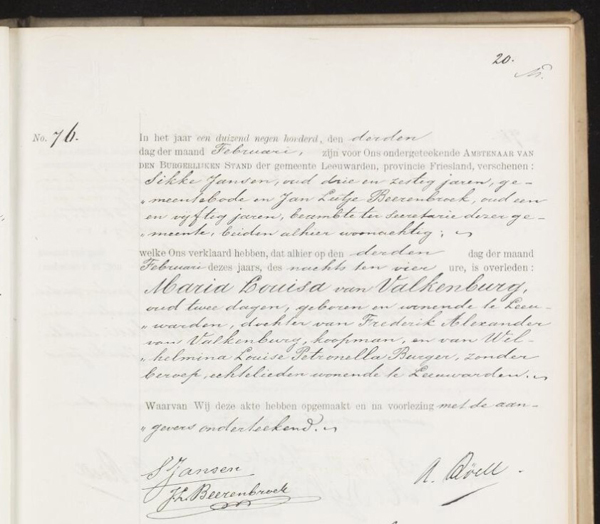 20.
No. 76.
In het jaar een duizend negen honderd, den derden
dag der maand Februari, zijn voor Ons ondergeteekende AMBTENAAR VAN
DEN BURGERLIJKEN STAND der gemeente Leeuwarden, provincie Friesland, verschenen:
Sikke Jansen, oud drie en zestig jaren, ge-
„meentebode en Jan Lutje Beerenbroek, oud een
en vyftig jaren, beambte ter secretarie dezer ge-
„meente, beiden alhier woonachtig;
welke Ons verklaard hebben, dat alhier op den derden dag der maand
Februari dezes jaars, des nachts ten vier ure, is overleden:
Maria Louisa van Valkenburg,
oud twee dagen, geboren en wonende te Leeu-
„warden, dochter van Frederik Alexander
van Valkenburg, koopman, en van Wil-
„helmina Louise Petronella Burger, zonder
beroep, echtelieden wonende te Leeuwarden.
Waarvan Wij deze akte hebben opgemaakt en na voorlezing met de aan-
„gevers onderteekend.
S Jansen
JL Beerenbroek